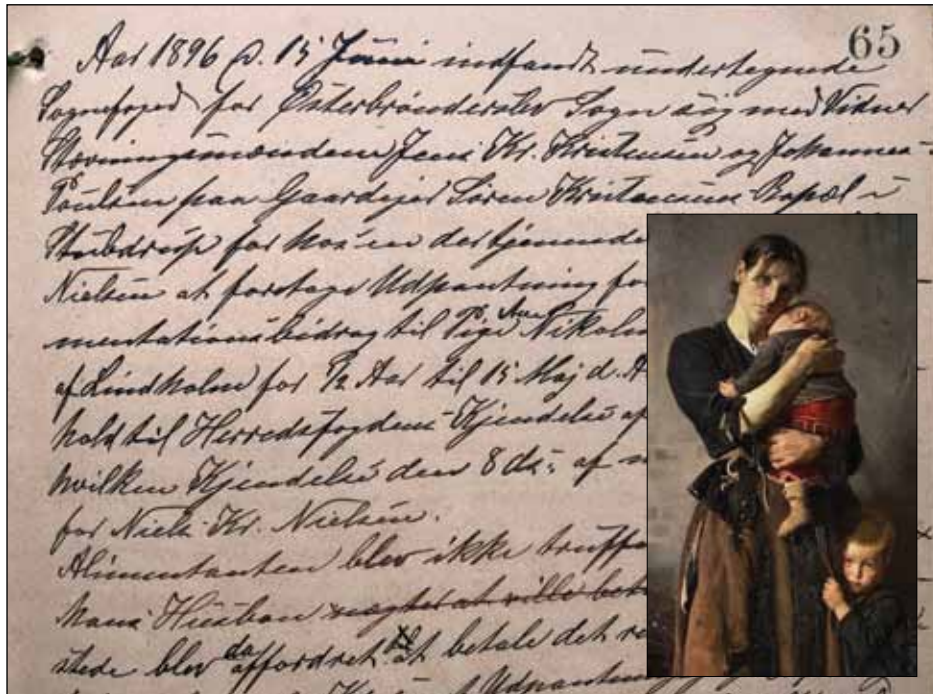 65
Aar 1896 d. 15 Juni indfandt undertegnede
Sognefoged for Østerbrønderslev Sogn sig med Vidner
Stævningsmændene Jens Kr. Kristensen og Johannes
Poulsen paa Gaardejer Søren Kristensens Bopæl i
Stubdrup for hos en der tjenende
Nielsen at foretage Udpantning for
mentationsbidrag til Pige Ane Nikoline
af Lindholm for ½ Aar til 15 Maj d. A
hold til Herredsfogdens Kjendelse af
hvilken Kjendelse den 8 ds: af
for Niels Kr. Nielsen.
Alimentanten blev ikke truffe
hans Husbon nægter at ville bet
stede blev da affordret at betale det
Udpantning